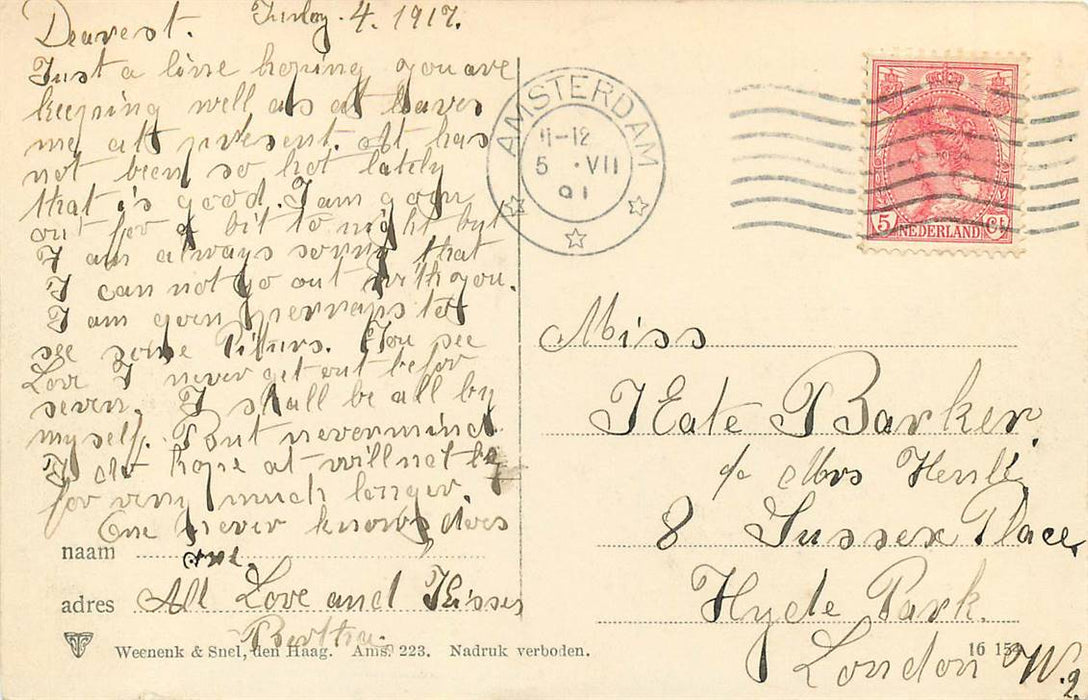 Dearest. July. 4. 1917.
Just a line hoping you are
keeping well as at leaves
me at present. It has
not been so hot lately
that is good. I am goin
out for a bit to night but
I am always sorry that
I can not go out with you.
I am goin perraps to
see some Pitturs. You see
Love I never get out befor
seven. I shall be all by
myself. But nevermind.
I do hope at will not be
for very much longer.
One never knows, does
one.
All Love and Kisses
naam
adres
Weenenk & Snel, den Haag. Ams. 223. Nadruk verboden.
AMSTERDAM
11-12
5 · VII
5 NEDERLAND Ct
Miss
Kate Barker.
c/o Mrs
8 Sussex Place,
Hyde Park.
London W.2
16 154